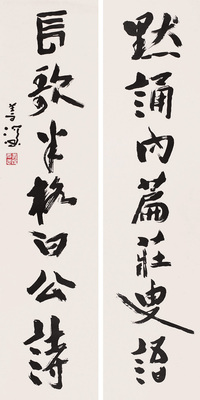 默誦內篇莊叟語
長歌半格白公詩